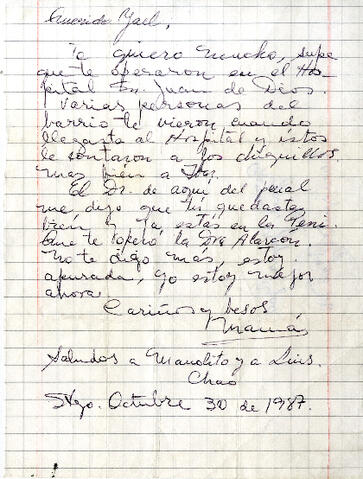 Querido Yael,
Te quiero mucho, supe
que te operaron en el Ho-
spital Sn. Juan de Dios.
Varias personas del
barrio te vieron cuando
llegaste al Hospital y éstos
le contaron a los chiquillos.
mas bien a
El Dr. de aquí del penal
me dijo que tú quedaste
bien y ya, estás en la Peni.
Que te operó la Dra Alarcón.
No te digo más, estoy
apurada, yo estoy mejor
ahora.
Cariños y besos
Mamá
Saludos a Manolito y a Luis.
Chao
Stgo. Octubre 30 de 1987.